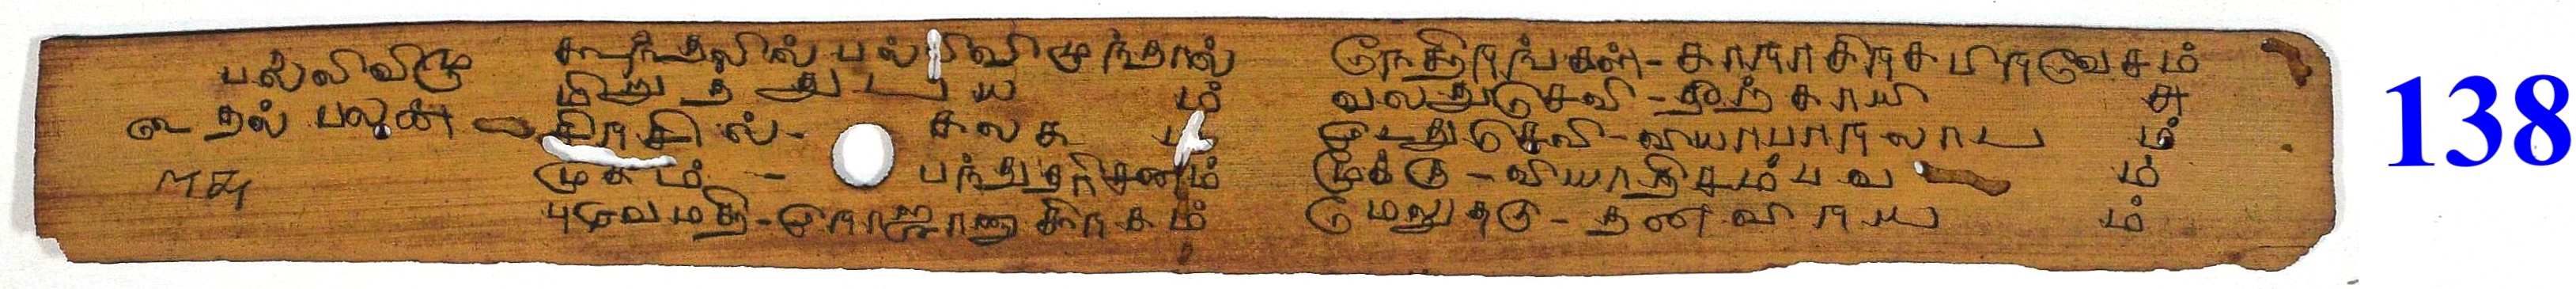 பல்லிவிழு
௨ தல் பலன்
கூந்தலில் பல்லிவிழுந்தால்
மிறுத்துபய ம்
சிரசில் - கலக ம்
முகம் - பந்துதரிசனம்
புருவமதி - ராஜானுகிரகம்
நேத்திரங்கள் - காராகிரகபிரவேசம்
வலதுசெவி - தீற்காயி சு
இடதுசெவி - வியாபாரலாப ம்
மூக்கு - வியாதிசம்பவ ம்
மேலுதடு - தனவிரய ம்
138